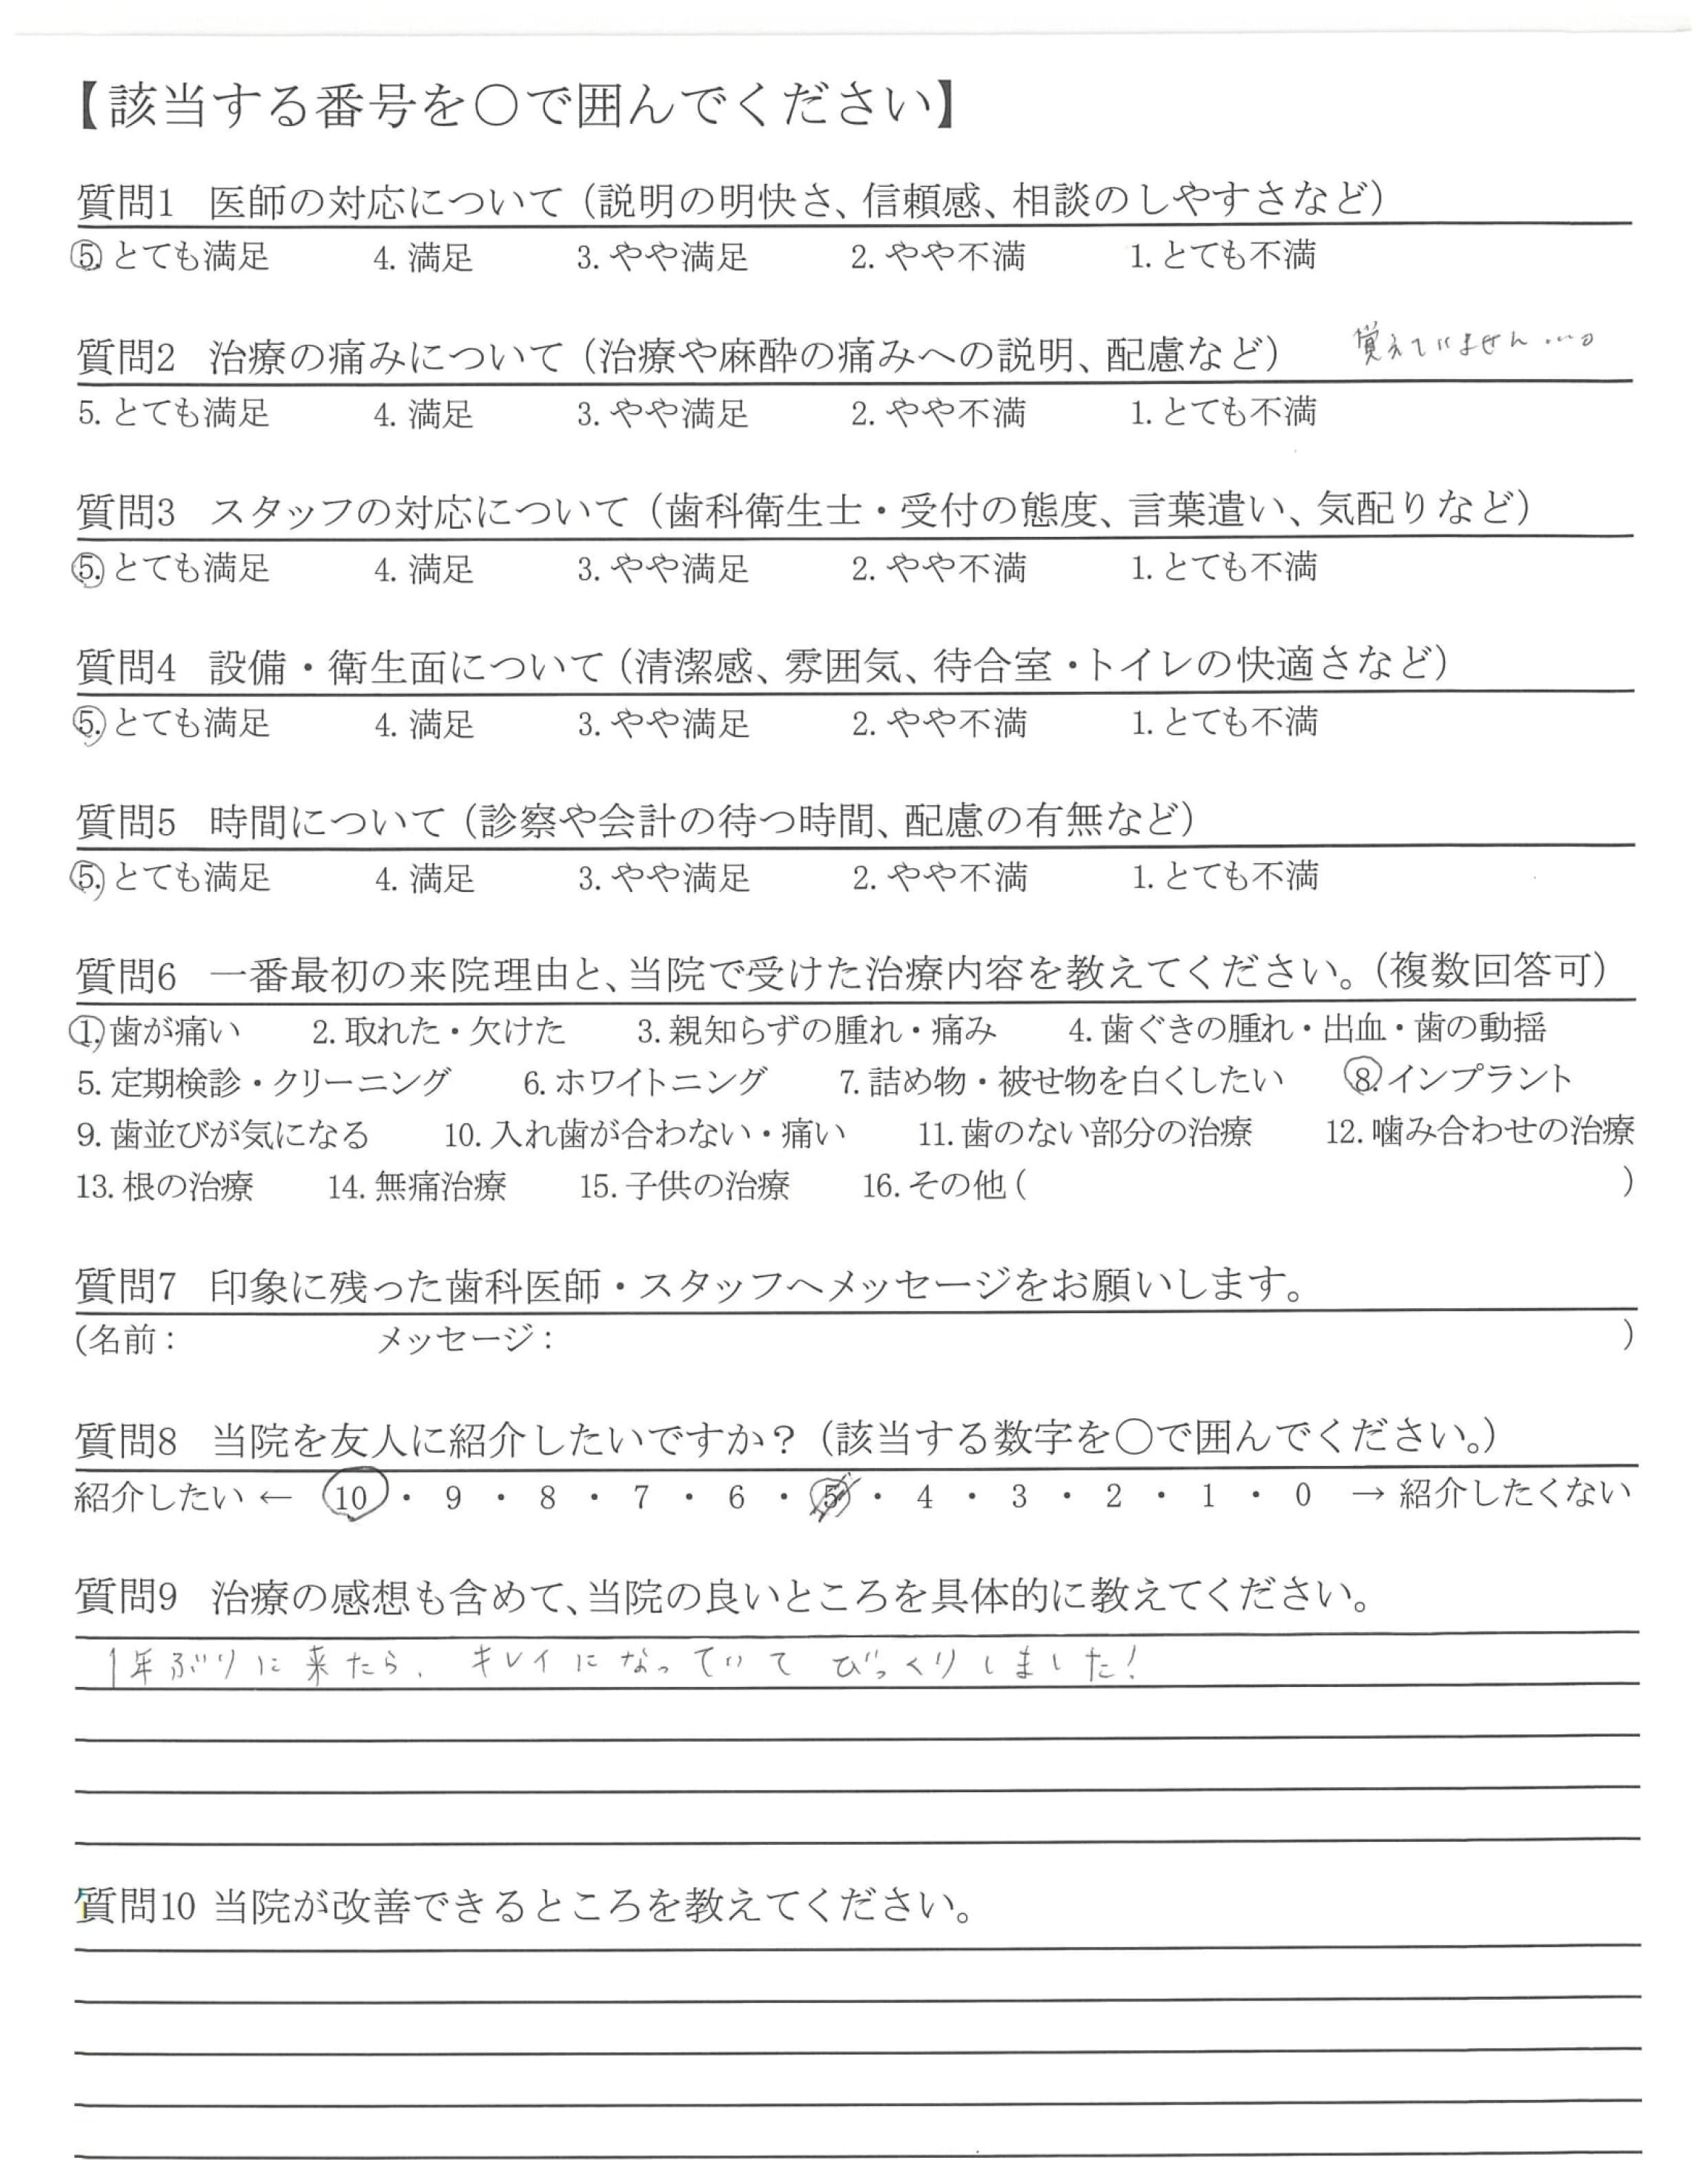 【該当する番号を○で囲んでください】
質問1 医師の対応について（説明の明快さ、信頼感、相談のしやすさなど）
5. とても満足 4. 満足 3. やや満足 2. やや不満 1. とても不満
質問2 治療の痛みについて（治療や麻酔の痛みへの説明、配慮など） 覚えていません…。
5. とても満足 4. 満足 3. やや満足 2. やや不満 1. とても不満
質問3 スタッフの対応について（歯科衛生士・受付の態度、言葉遣い、気配りなど）
5. とても満足 4. 満足 3. やや満足 2. やや不満 1. とても不満
質問4 設備・衛生面について（清潔感、雰囲気、待合室・トイレの快適さなど）
5. とても満足 4. 満足 3. やや満足 2. やや不満 1. とても不満
質問5 時間について（診察や会計の待つ時間、配慮の有無など）
5. とても満足 4. 満足 3. やや満足 2. やや不満 1. とても不満
質問6 一番最初の来院理由と、当院で受けた治療内容を教えてください。（複数回答可）
1. 歯が痛い 2. 取れた・欠けた 3. 親知らずの腫れ・痛み 4. 歯ぐきの腫れ・出血・歯の動揺
5. 定期検診・クリーニング 6. ホワイトニング 7. 詰め物・被せ物を白くしたい 8. インプラント
9. 歯並びが気になる 10. 入れ歯が合わない・痛い 11. 歯のない部分の治療 12. 噛み合わせの治療
13. 根の治療 14. 無痛治療 15. 子供の治療 16. その他（ ）
質問7 印象に残った歯科医師・スタッフへメッセージをお願いします。
（名前： メッセージ： ）
質問8 当院を友人に紹介したいですか？（該当する数字を○で囲んでください。）
紹介したい ← 10 ・ 9 ・ 8 ・ 7 ・ 6 ・ 5 ・ 4 ・ 3 ・ 2 ・ 1 ・ 0 → 紹介したくない
質問9 治療の感想も含めて、当院の良いところを具体的に教えてください。
1年ぶりに来たら、キレイになっていてびっくりしました！
質問10 当院が改善できるところを教えてください。